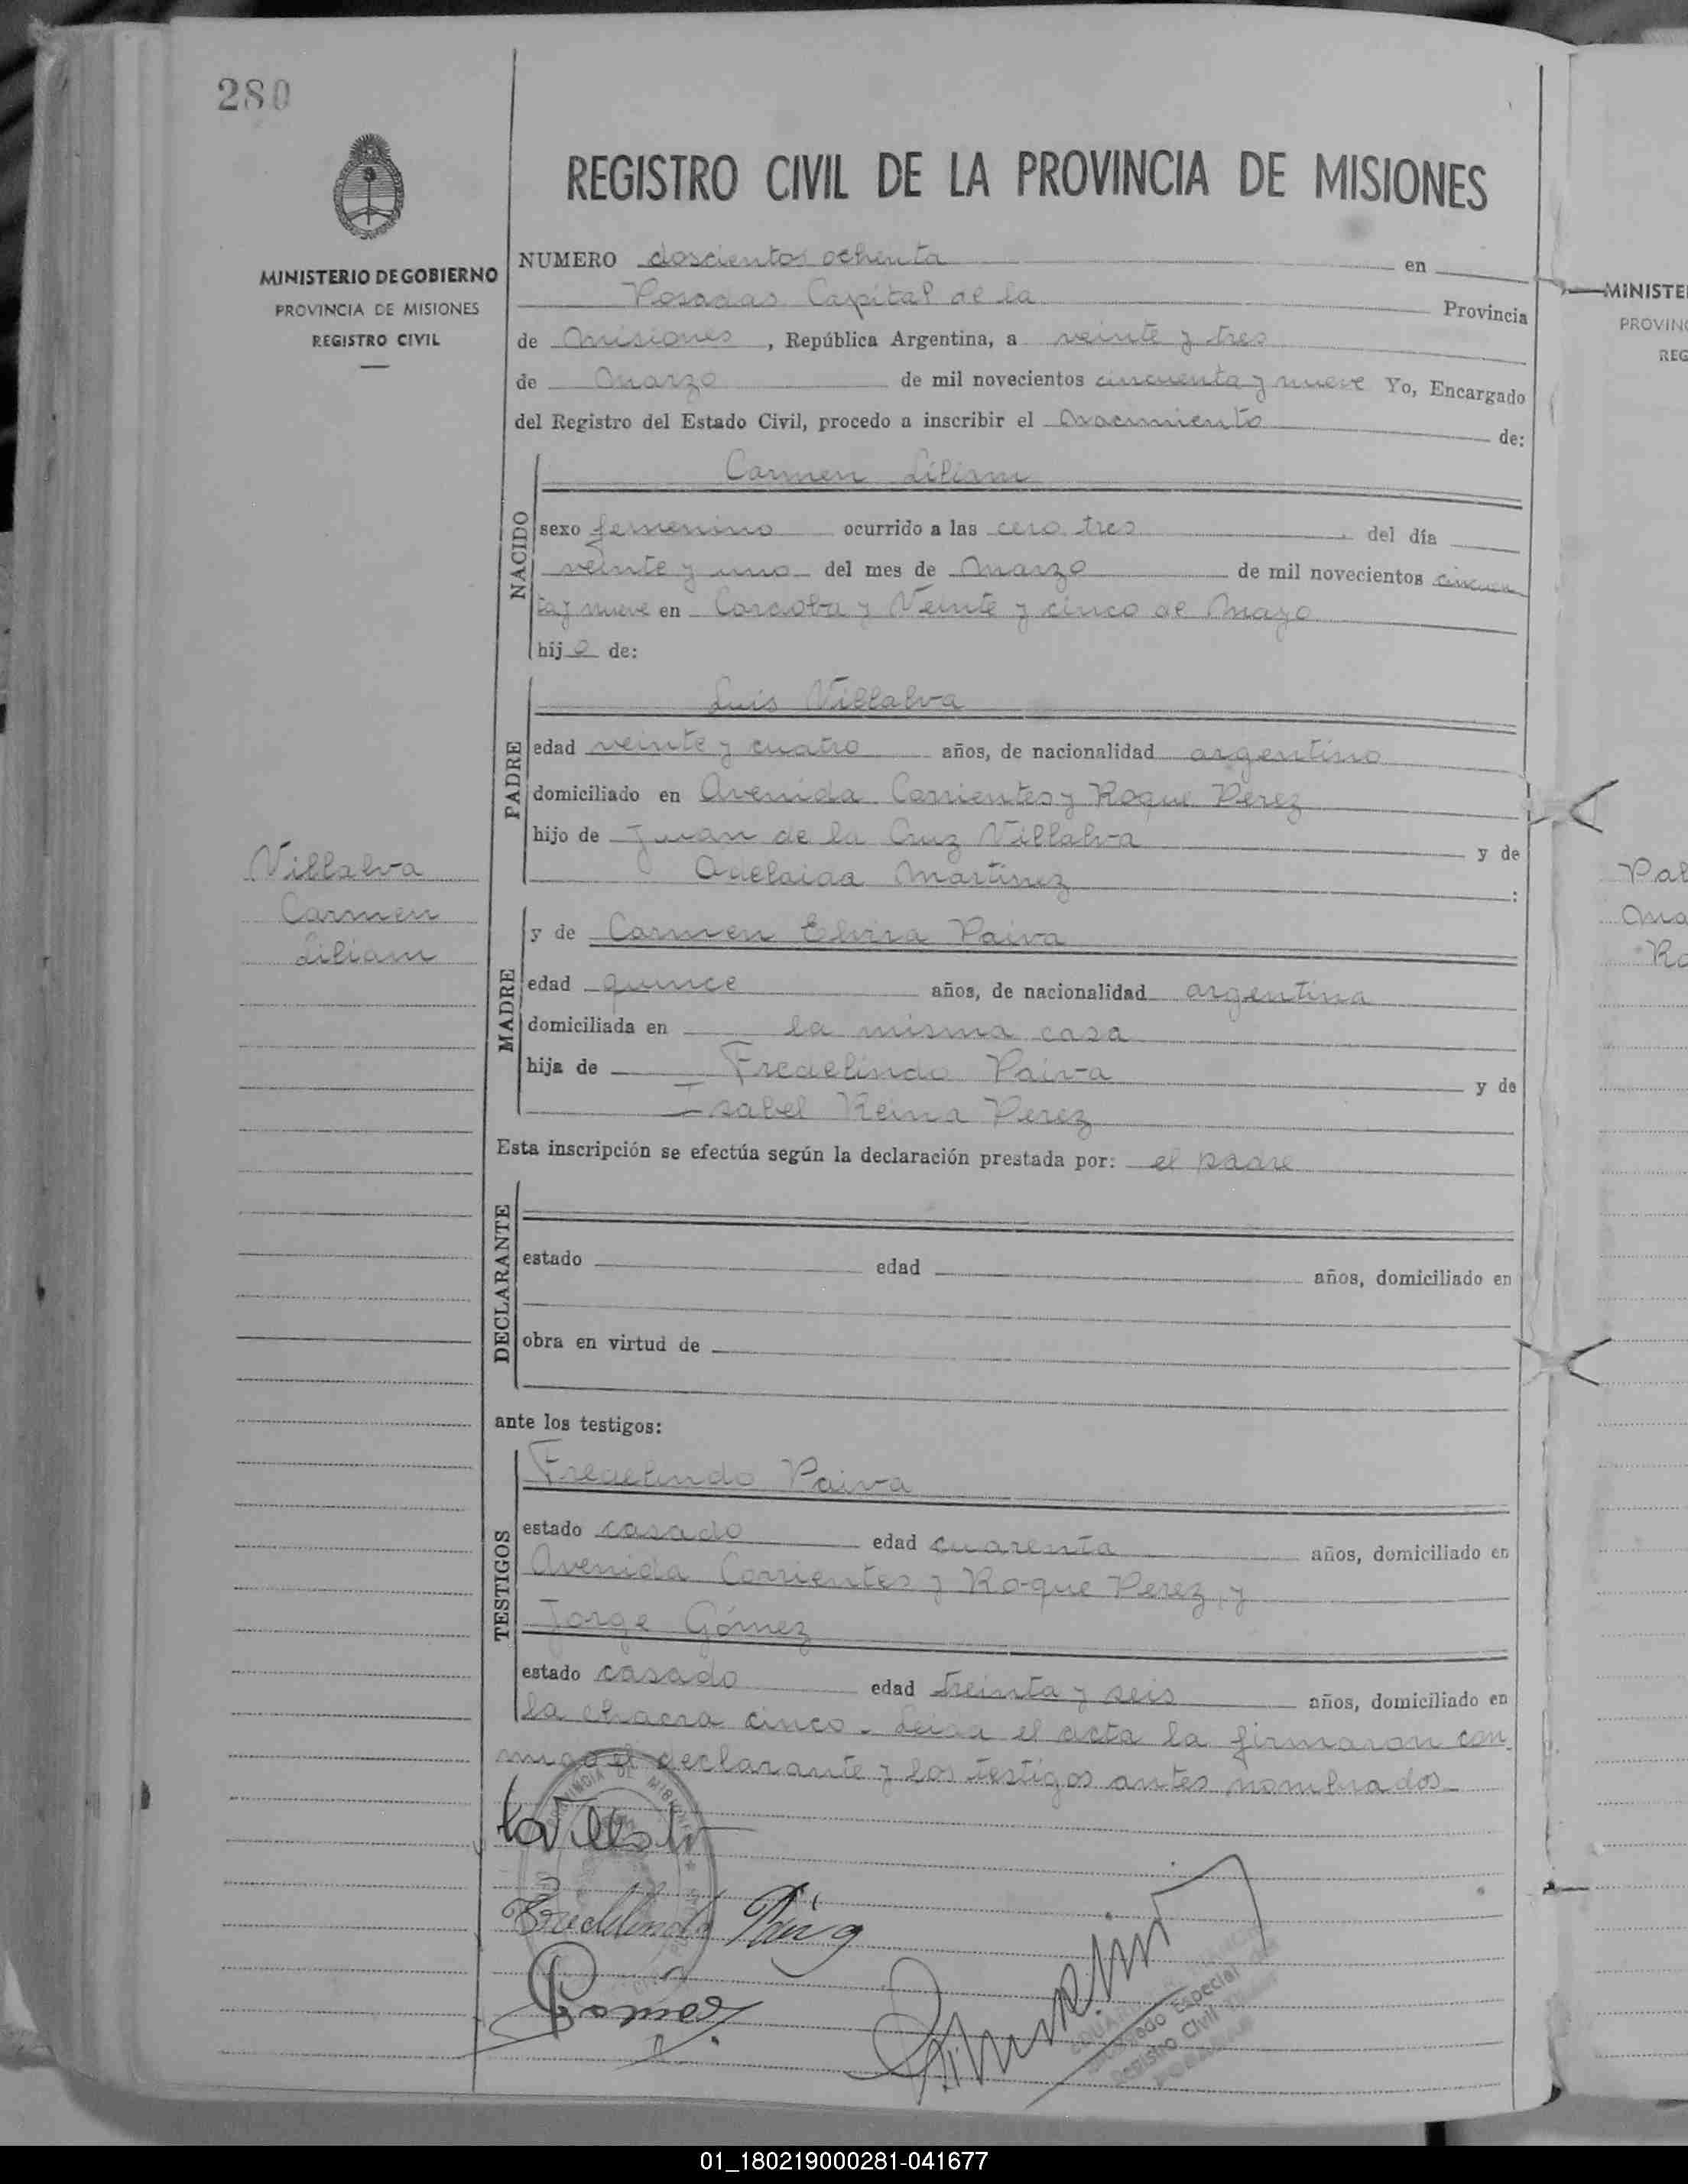 280
REGISTRO CIVIL DE LA PROVINCIA DE MISIONES
MINISTERIO DE GOBIERNO
PROVINCIA DE MISIONES
REGISTRO CIVIL
NUMERO doscientos ochenta en
Posadas Capital de la Provincia
de Misiones, República Argentina, a veinte y tres
de Marzo de mil novecientos cincuenta y nueve Yo, Encargado
del Registro del Estado Civil, procedo a inscribir el Nacimiento de:
NACIDO
Carmen Liliam
sexo femenino ocurrido a las cero tres del día
veinte y uno del mes de Marzo de mil novecientos cincuen
ta y nueve en Cordoba y Veinte y cinco de Mayo
hija de:
PADRE
Luis Villalva
edad veinte y cuatro años, de nacionalidad argentino
domiciliado en Avenida Corrientes y Roque Perez
hijo de Juan de la Cruz Villalva y de
Adelaida Martinez :
Villalva
Carmen
Liliam
MADRE
y de Carmen Elvira Paiva
edad quince años, de nacionalidad argentina
domiciliada en la misma casa
hija de Fredelindo Paiva y de
Isabel Reina Perez
Esta inscripción se efectúa según la declaración prestada por: el padre
DECLARANTE
estado edad años, domiciliado en
obra en virtud de
ante los testigos:
TESTIGOS
Fredelindo Paiva
estado casado edad cuarenta años, domiciliado en
Avenida Corrientes y Roque Perez, y
Jorge Gómez
estado casado edad treinta y seis años, domiciliado en
la chacra cinco. Leida el acta la firmaron con
migo el declarante y los testigos antes nombrados.
Fredelindo Paiva
Gomez
Encargado Especial
Registro Civil
MINISTE
PROVINC
REG
01_180219000281-041677